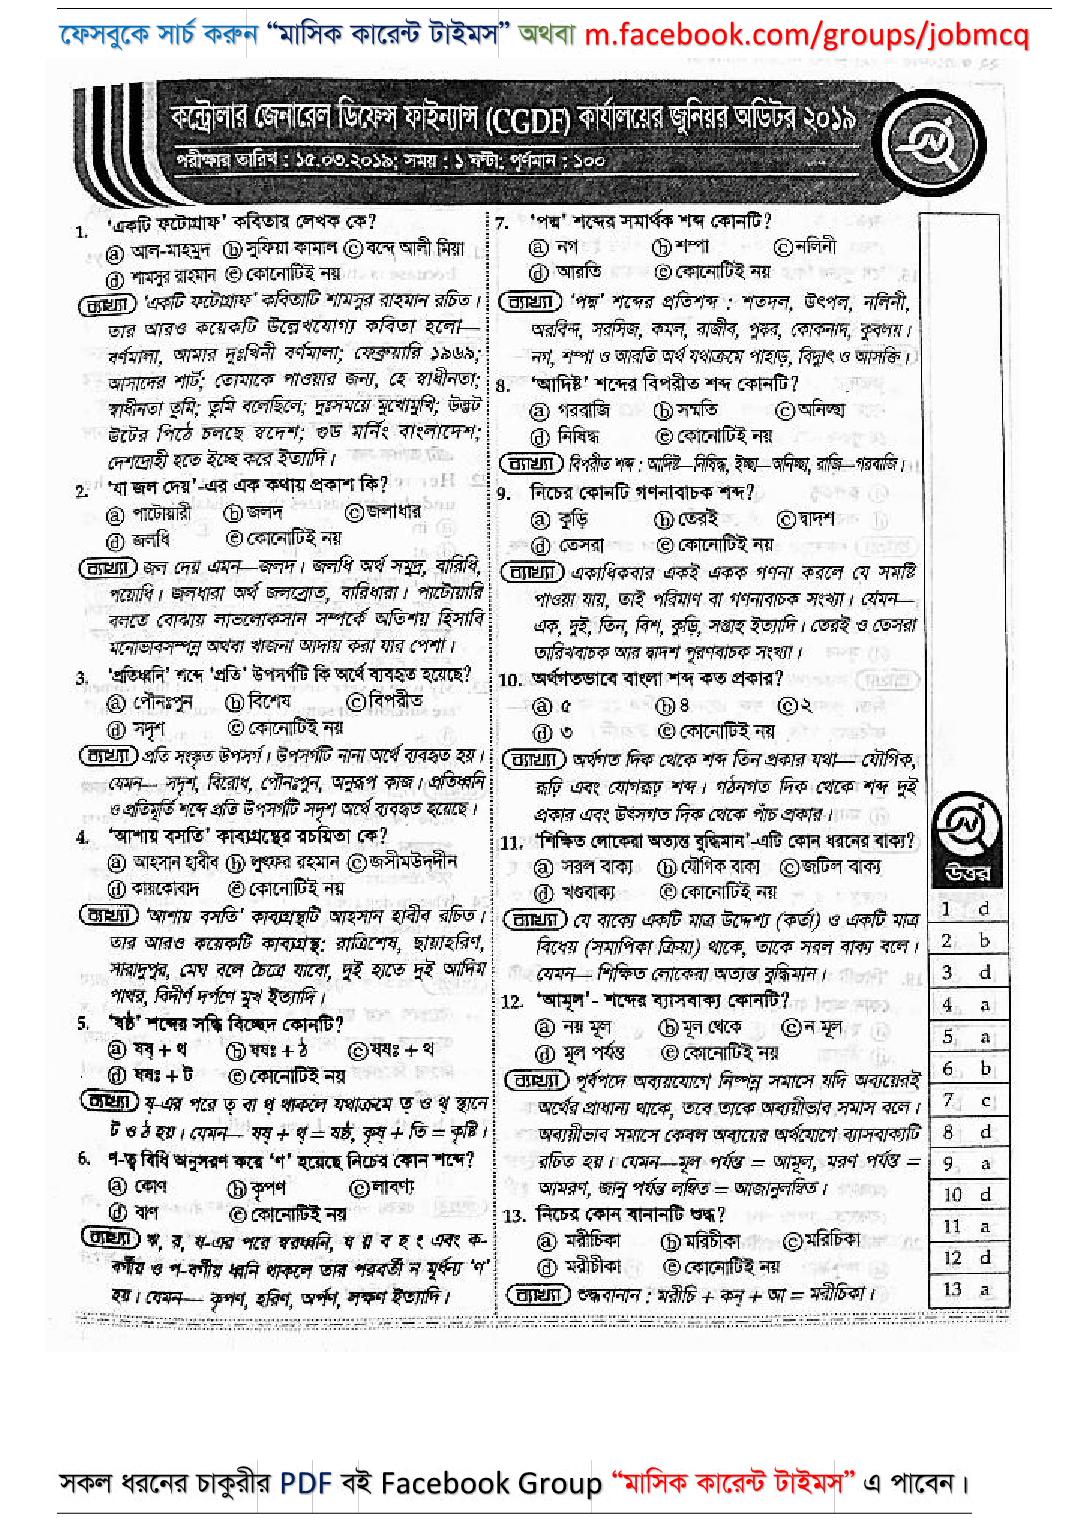 ফেসবুকে সার্চ করুন “মাসিক কারেন্ট টাইমস” অথবা m.facebook.com/groups/jobmcq
কন্ট্রোলার জেনারেল ডিফেন্স ফাইন্যান্স (CGDF) কার্যালয়ের জুনিয়র অডিটর ২০১৯
পরীক্ষার তারিখ : ১৫.০৩.২০১৯; সময় : ১ ঘণ্টা; পূর্ণমান : ১০০
1. ‘একটি ফটোগ্রাফ’ কবিতার লেখক কে?
ⓐ আল-মাহমুদ ⓑ সুফিয়া কামাল ⓒ বন্দে আলী মিয়া
ⓓ শামসুর রাহমান ⓔ কোনোটিই নয়
ব্যাখ্যা ‘একটি ফটোগ্রাফ’ কবিতাটি শামসুর রাহমান রচিত।
তার আরও কয়েকটি উল্লেখযোগ্য কবিতা হলো—
বর্ণমালা, আমার দুঃখিনী বর্ণমালা; ফেব্রুয়ারি ১৯৬৯;
আসাদের শার্ট; তোমাকে পাওয়ার জন্য, হে স্বাধীনতা;
স্বাধীনতা তুমি; তুমি বলেছিলে; দুঃসময়ে মুখোমুখি; উদ্ভট
উটের পিঠে চলছে স্বদেশ; গুড মর্নিং বাংলাদেশ;
দেশদ্রোহী হতে ইচ্ছে করে ইত্যাদি।
2. ‘যা জল দেয়’-এর এক কথায় প্রকাশ কি?
ⓐ পাটোয়ারী ⓑ জলদ ⓒ জলাধার
ⓓ জলধি ⓔ কোনোটিই নয়
ব্যাখ্যা জল দেয় এমন—জলদ। জলধি অর্থ সমুদ্র, বারিধি,
পয়োধি। জলধারা অর্থ জলস্রোত, বারিধারা। পাটোয়ারি
বলতে বোঝায় লাভলোকসান সম্পর্কে অতিশয় হিসাবি
মনোভাবসম্পন্ন অথবা খাজনা আদায় করা যার পেশা।
3. ‘প্রতিধ্বনি’ শব্দে ‘প্রতি’ উপসর্গটি কি অর্থে ব্যবহৃত হয়েছে?
ⓐ পৌনঃপুন ⓑ বিশেষ ⓒ বিপরীত
ⓓ সদৃশ ⓔ কোনোটিই নয়
ব্যাখ্যা প্রতি সংস্কৃত উপসর্গ। উপসর্গটি নানা অর্থে ব্যবহৃত হয়।
যেমন— সদৃশ, বিরোধ, পৌনঃপুন, অনুরূপ কাজ। প্রতিধ্বনি
ও প্রতিমূর্তি শব্দে প্রতি উপসর্গটি সদৃশ অর্থে ব্যবহৃত হয়েছে।
4. ‘আশায় বসতি’ কাব্যগ্রন্থের রচয়িতা কে?
ⓐ আহসান হাবীব ⓑ লুৎফর রহমান ⓒ জসীমউদদীন
ⓓ কায়কোবাদ ⓔ কোনোটিই নয়
ব্যাখ্যা ‘আশায় বসতি’ কাব্যগ্রন্থটি আহসান হাবীব রচিত।
তার আরও কয়েকটি কাব্যগ্রন্থ: রাত্রিশেষ, ছায়াহরিণ,
সারাদুপুর, মেঘ বলে চৈত্রে যাবো, দুই হাতে দুই আদিম
পাথর, বিদীর্ণ দর্পণে মুখ ইত্যাদি।
5. ‘ষষ্ঠ’ শব্দের সন্ধি বিচ্ছেদ কোনটি?
ⓐ ষষ্ + থ ⓑ ষষঃ + ঠ ⓒ ষষঃ + থ
ⓓ ষষঃ + ট ⓔ কোনোটিই নয়
ব্যাখ্যা ষ্-এর পরে ত্ বা থ্ থাকলে যথাক্রমে ত্ ও থ্ স্থানে
ট ও ঠ হয়। যেমন— ষষ্ + থ্ = ষষ্ঠ, কৃষ্ + তি = কৃষ্টি।
6. ণ-ত্ব বিধি অনুসরণ করে ‘ণ’ হয়েছে নিচের কোন শব্দে?
ⓐ কোণ ⓑ কৃপণ ⓒ লাবণ্য
ⓓ বাণ ⓔ কোনোটিই নয়
ব্যাখ্যা ঋ, র, ষ-এর পরে স্বরধ্বনি, ষ য় ব হ ং এবং ক-
বর্গীয় ও প-বর্গীয় ধ্বনি থাকলে তার পরবর্তী ন মূর্ধন্য ‘ণ’
হয়। যেমন— কৃপণ, হরিণ, অর্পণ, লক্ষণ ইত্যাদি।
7. ‘পদ্ম’ শব্দের সমার্থক শব্দ কোনটি?
ⓐ নগ ⓑ শম্পা ⓒ নলিনী
ⓓ আরতি ⓔ কোনোটিই নয়
ব্যাখ্যা ‘পদ্ম’ শব্দের প্রতিশব্দ : শতদল, উৎপল, নলিনী,
অরবিন্দ, সরসিজ, কমল, রাজীব, পুষ্কর, কোকনাদ, কুবলয়।
নগ, শম্পা ও আরতি অর্থ যথাক্রমে পাহাড়, বিদ্যুৎ ও আসক্তি।
8. ‘আদিষ্ট’ শব্দের বিপরীত শব্দ কোনটি?
ⓐ গররাজি ⓑ সম্মতি ⓒ অনিচ্ছা
ⓓ নিষিদ্ধ ⓔ কোনোটিই নয়
ব্যাখ্যা বিপরীত শব্দ : আদিষ্ট—নিষিদ্ধ, ইচ্ছা—অনিচ্ছা, রাজি—গররাজি।
9. নিচের কোনটি গণনাবাচক শব্দ?
ⓐ কুড়ি ⓑ তেরই ⓒ দ্বাদশ
ⓓ তেসরা ⓔ কোনোটিই নয়
ব্যাখ্যা একাধিকবার একই একক গণনা করলে যে সমষ্টি
পাওয়া যায়, তাই পরিমাণ বা গণনাবাচক সংখ্যা। যেমন—
এক, দুই, তিন, বিশ, কুড়ি, সপ্তাহ ইত্যাদি। তেরই ও তেসরা
তারিখবাচক আর দ্বাদশ পূরণবাচক সংখ্যা।
10. অর্থগতভাবে বাংলা শব্দ কত প্রকার?
ⓐ ৫ ⓑ ৪ ⓒ ২
ⓓ ৩ ⓔ কোনোটিই নয়
ব্যাখ্যা অর্থগত দিক থেকে শব্দ তিন প্রকার যথা— যৌগিক,
রূঢ়ি এবং যোগরূঢ় শব্দ। গঠনগত দিক থেকে শব্দ দুই
প্রকার এবং উৎসগত দিক থেকে পাঁচ প্রকার।
11. ‘শিক্ষিত লোকেরা অত্যন্ত বুদ্ধিমান’-এটি কোন ধরনের বাক্য?
ⓐ সরল বাক্য ⓑ যৌগিক বাক্য ⓒ জটিল বাক্য
ⓓ খণ্ডবাক্য ⓔ কোনোটিই নয়
ব্যাখ্যা যে বাক্যে একটি মাত্র উদ্দেশ্য (কর্তা) ও একটি মাত্র
বিধেয় (সমাপিকা ক্রিয়া) থাকে, তাকে সরল বাক্য বলে।
যেমন— শিক্ষিত লোকেরা অত্যন্ত বুদ্ধিমান।
12. ‘আমূল’- শব্দের ব্যাসবাক্য কোনটি?
ⓐ নয় মূল ⓑ মূল থেকে ⓒ ন মূল
ⓓ মূল পর্যন্ত ⓔ কোনোটিই নয়
ব্যাখ্যা পূর্বপদে অব্যয়যোগে নিষ্পন্ন সমাসে যদি অব্যয়েরই
অর্থের প্রাধান্য থাকে, তবে তাকে অব্যয়ীভাব সমাস বলে।
অব্যয়ীভাব সমাসে কেবল অব্যয়ের অর্থযোগে ব্যাসবাক্যটি
রচিত হয়। যেমন—মূল পর্যন্ত = আমূল, মরণ পর্যন্ত =
আমরণ, জানু পর্যন্ত লম্বিত = আজানুলম্বিত।
13. নিচের কোন্ বানানটি শুদ্ধ?
ⓐ মরীচিকা ⓑ মরিচীকা ⓒ মরিচিকা
ⓓ মরীচীকা ⓔ কোনোটিই নয়
ব্যাখ্যা শুদ্ধবানান : মরীচি + কন্ + আ = মরীচিকা।
উত্তর
1 d
2 b
3 d
4 a
5 a
6 b
7 c
8 d
9 a
10 d
11 a
12 d
13 a
সকল ধরনের চাকুরীর PDF বই Facebook Group “মাসিক কারেন্ট টাইমস” এ পাবেন।